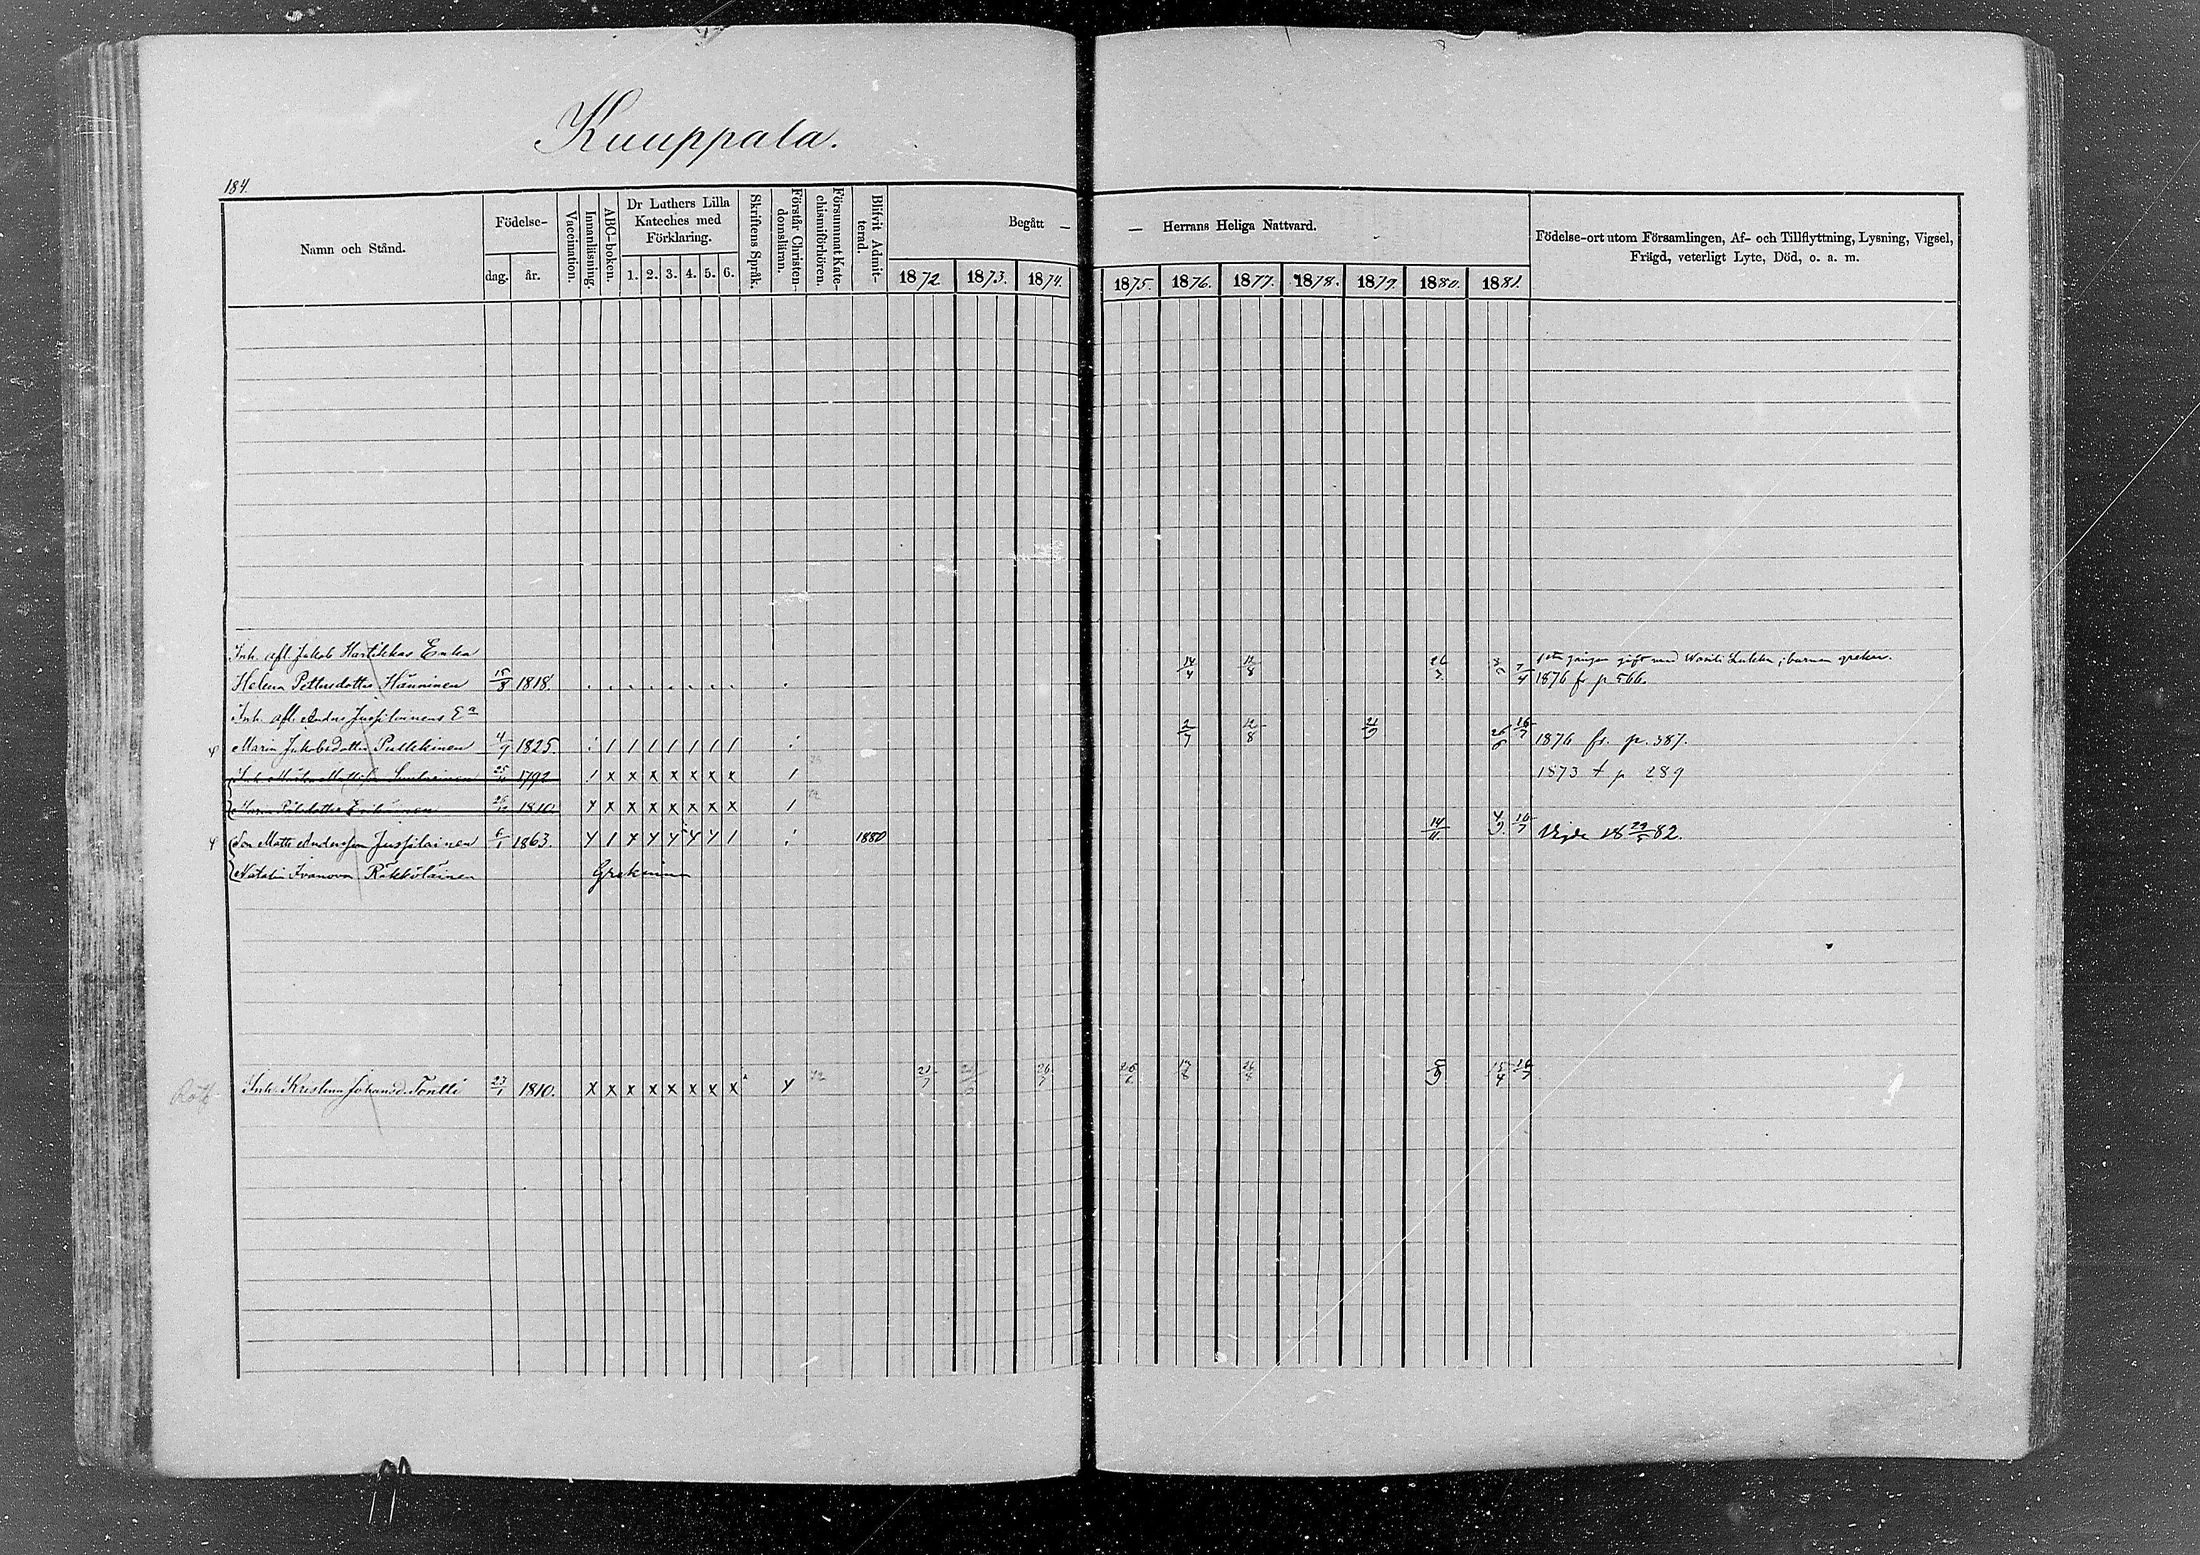 Kuuppala.
184.
Namn och Stånd.
Födelse-
dag.
år.
Vaccination.
Innanläsning.
ABC-boken.
Dr Luthers Lilla
Kateches med
Förklaring.
1. 2. 3. 4. 5. 6.
Skriftens Språk.
Förstår Christen-
domsläran.
Försummat Kate-
chismiförhören.
Blifvit Admit-
terad.
Begått —
— Herrans Heliga Nattvard.
1872 1873. 1874. 1875. 1876. 1877. 1878. 1879. 1880. 1881.
Födelse-ort utom Församlingen, Af- och Tillflyttning, Lysning, Vigsel,
Frägd, veterligt Lyte, Död, o. a. m.
Inh. afl. Jakob Hartikkas Enka
gången gift med barnen greker.
Helena Pettersdotter Hänninen 15/8 1818. 14/4 1876 fr p 566.
Inh. afl. Anders Juppilainens Ea
Maria Jakobsdotter Pullikinen 4/9 1825 / / / / / / / 2/7 12/8 21/9 16/7 1876 fr. p. 387.
1792 / x x x x x x x / 1873 † p 289
1810. x x x x x x x /
Son Matts Andersson Juppilainen 6/1 1863. 1880 14/11 4/9 16/7 Vigde 18 29/5 82.
Natalia Ivanova Räkköläinen Grekinna
Inh. Kristina Johansd. Tontti 23/1 1810. x x x x x x x x 21/7 26/7 26/6 17/8 26/8 5/9 15/4 16/7